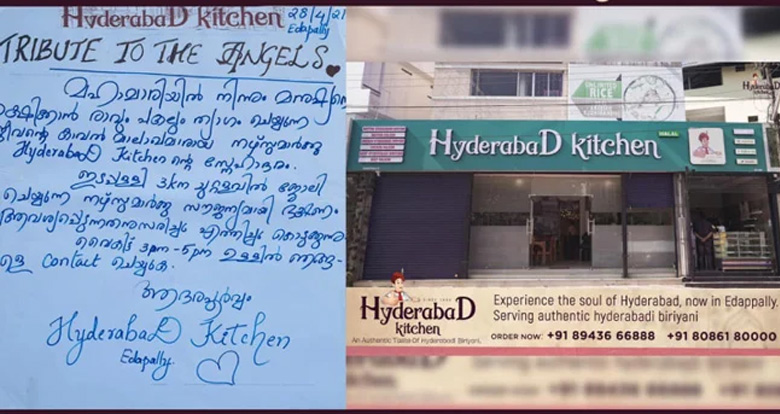 HyderabaD kitchen
28/4/21
Edapally
TRIBUTE TO THE ANGELS
മഹാമാരിയിൽ നിന്നും മനുഷ്യനെ
രക്ഷിക്കാൻ രാവും പകലും ത്യാഗം ചെയ്യുന്ന
ജീവന്റെ കാവൽ മാലാഖമാരായ നഴ്സുമാർക്കു
HyderabaD Kitchen ന്റെ സ്നേഹാദരം.
ഇടപ്പള്ളി 3km ചുറ്റളവിൽ ജോലി
ചെയ്യുന്ന നഴ്സുമാർക്കു സൗജന്യമായി ഭക്ഷണം
ആവശ്യപ്പെടുന്നതനുസരിച്ചു എത്തിച്ചു കൊടുക്കുന്നു
വൈകിട്ട് 3pm - 5pm ഉള്ളിൽ ഞങ്ങ-
ളെ contact ചെയ്യുക.
ആദരപൂർവ്വം
HyderabaD Kitchen
Edapally.
UNLIMITED
RICE
HyderabaD kitchen
HALAL
HyderabaD
kitchen
An Authentic Taste Of Hyderabadi Biriyani.
Experience the soul of Hyderabad, now in Edappally.
Serving authentic hyderabadi biriyani
ORDER NOW: +91 89436 66888 +91 80861 80000